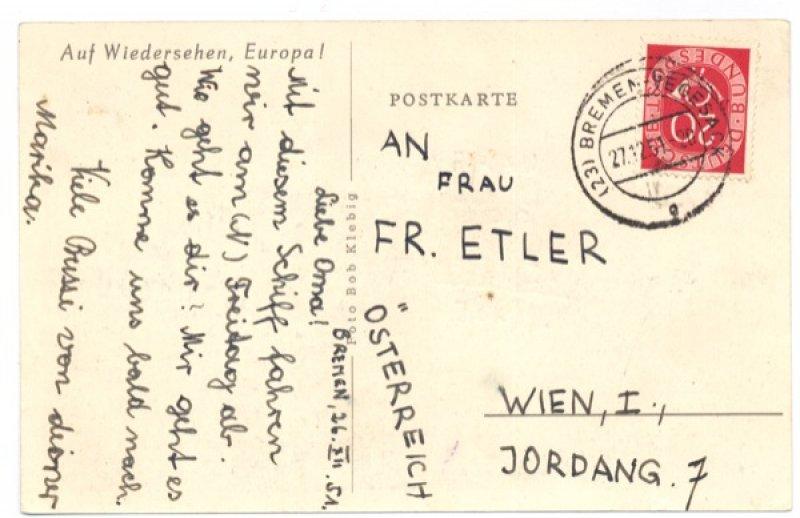 Auf Wiedersehen, Europa!
BREMEN, 26. XII. 51.
Liebe Oma!
Mit diesem Schiff fahren
wir am (N) Freitag ab.
Wie geht es dir? Mir geht es
gut. Komme uns bald nach.
Viele Bussi von deiner
Marika.
Foto Bob Klebig
POSTKARTE
AN
FRAU
FR. ETLER
WIEN, I.,
JORDANG. 7
ÖSTERREICH
(23) BREMEN-VEGESACK
27.12.51
20